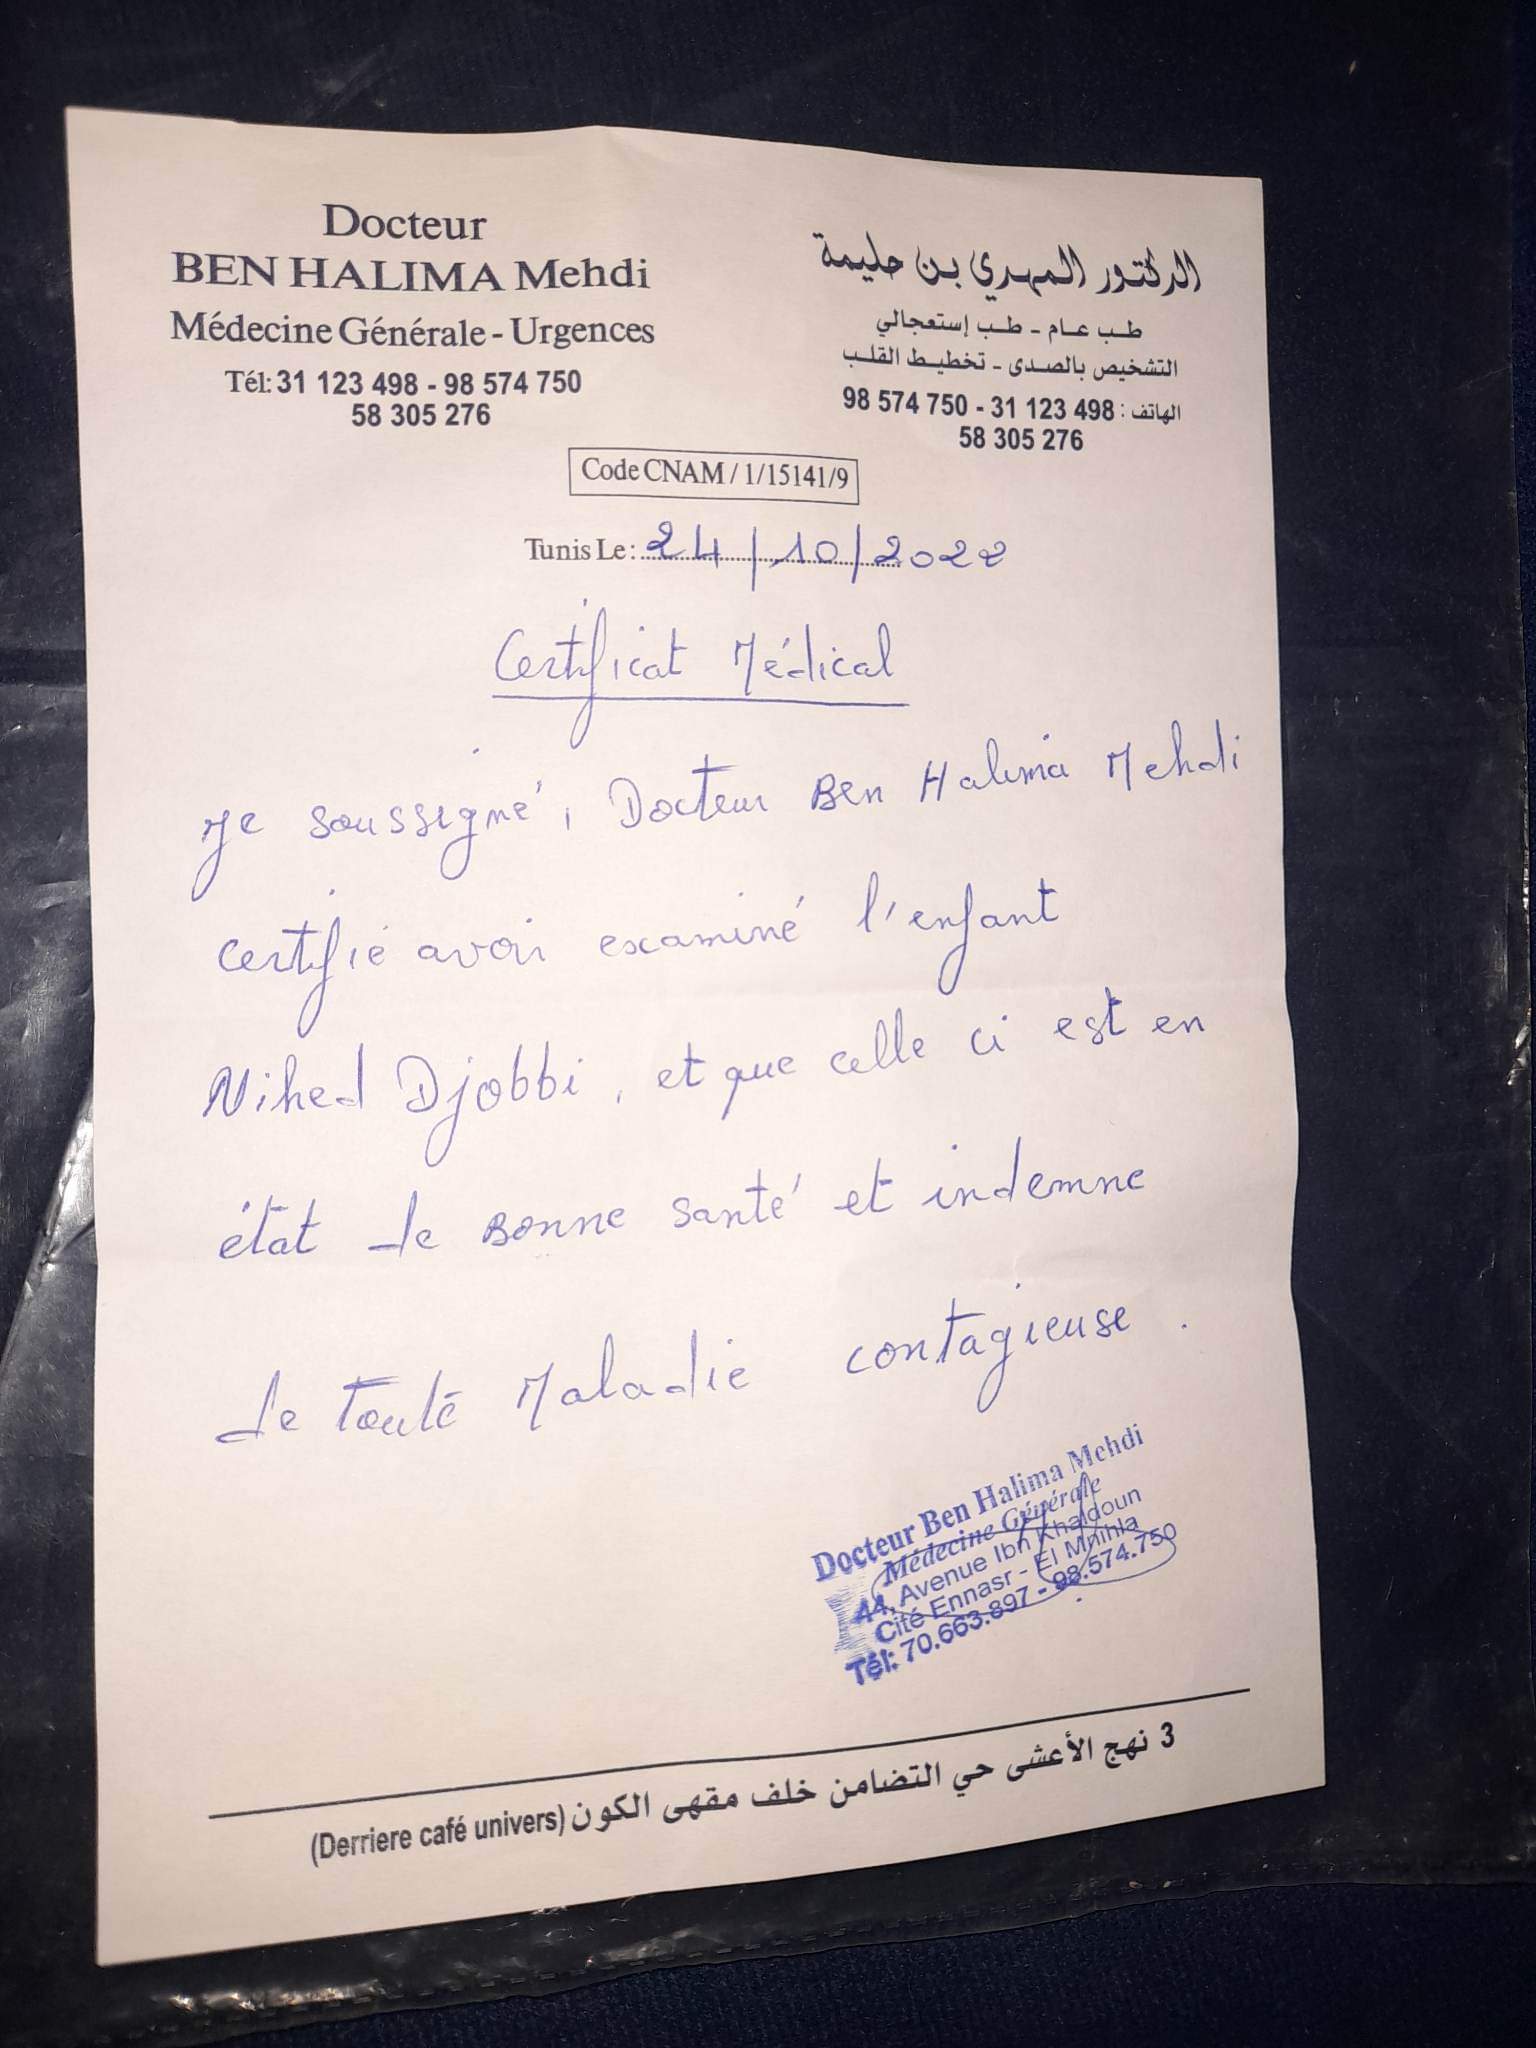 Docteur
BEN HALIMA Mehdi
Médecine Générale - Urgences
Tél: 31 123 498 - 98 574 750
58 305 276
الدكتور المهدي بن حليمة
طب عام - طب إستعجالي
التشخيص بالصدى - تخطيط القلب
الهاتف : 31 123 498 - 98 574 750
58 305 276
Code CNAM / 1/15141/9
Tunis Le: 24/10/2022
Certificat Médical
Je soussigné, Docteur Ben Halima Mehdi
certifie avoir examiné l'enfant
Nihed Djobbi, et que celle ci est en
état de bonne santé et indemne
de toute Maladie contagieuse.
Docteur Ben Halima Mehdi
Médecine Générale
44, Avenue Ibn Khaldoun
Cité Ennasr - El Mnihla
Tél: 70.663.897 - 98.574.750
3 نهج الأعشى حي التضامن خلف مقهى الكون (Derriere café univers)